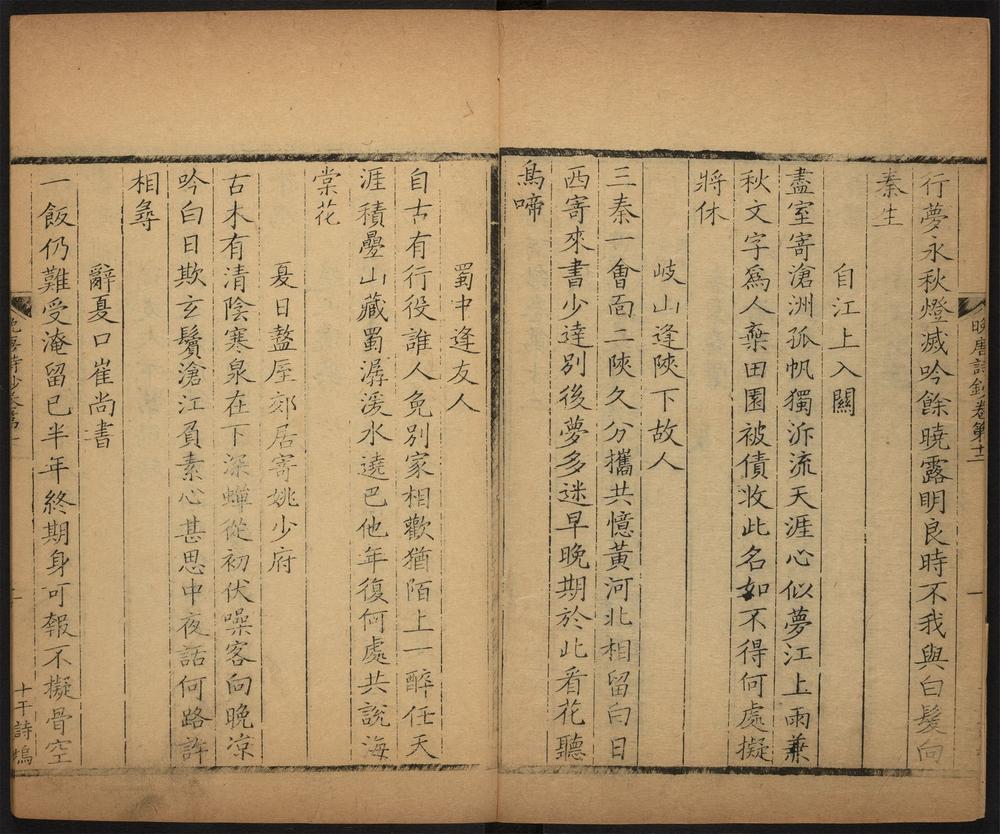 晚唐詩鈔卷第十二
一
行夢永秋燈滅吟餘曉露明良時不我與白髮向
秦生
自江上入關
盡室寄滄洲孤帆獨泝流天涯心似夢江上雨兼
秋文字爲人棄田園被債收此名如不得何處擬
將休
岐山逢陝下故人
三秦一會面二陝久分攜共憶黃河北相留白日
西寄來書少達別後夢多迷早晚期於此看花聽
鳥啼
蜀中逢友人
自古有行役誰人免別家相歡猶陌上一醉任天
涯積疊山藏蜀潺湲水遶巴他年復何處共說海
棠花
夏日盩厔郊居寄姚少府
古木有清陰寒泉在下深蟬從初伏噪客向晚凉
吟白日欺玄鬢滄江負素心甚思中夜話何路許
相尋
辭夏口崔尚書
一飯仍難受淹留已半年終期身可報不擬骨空
十干詩塢